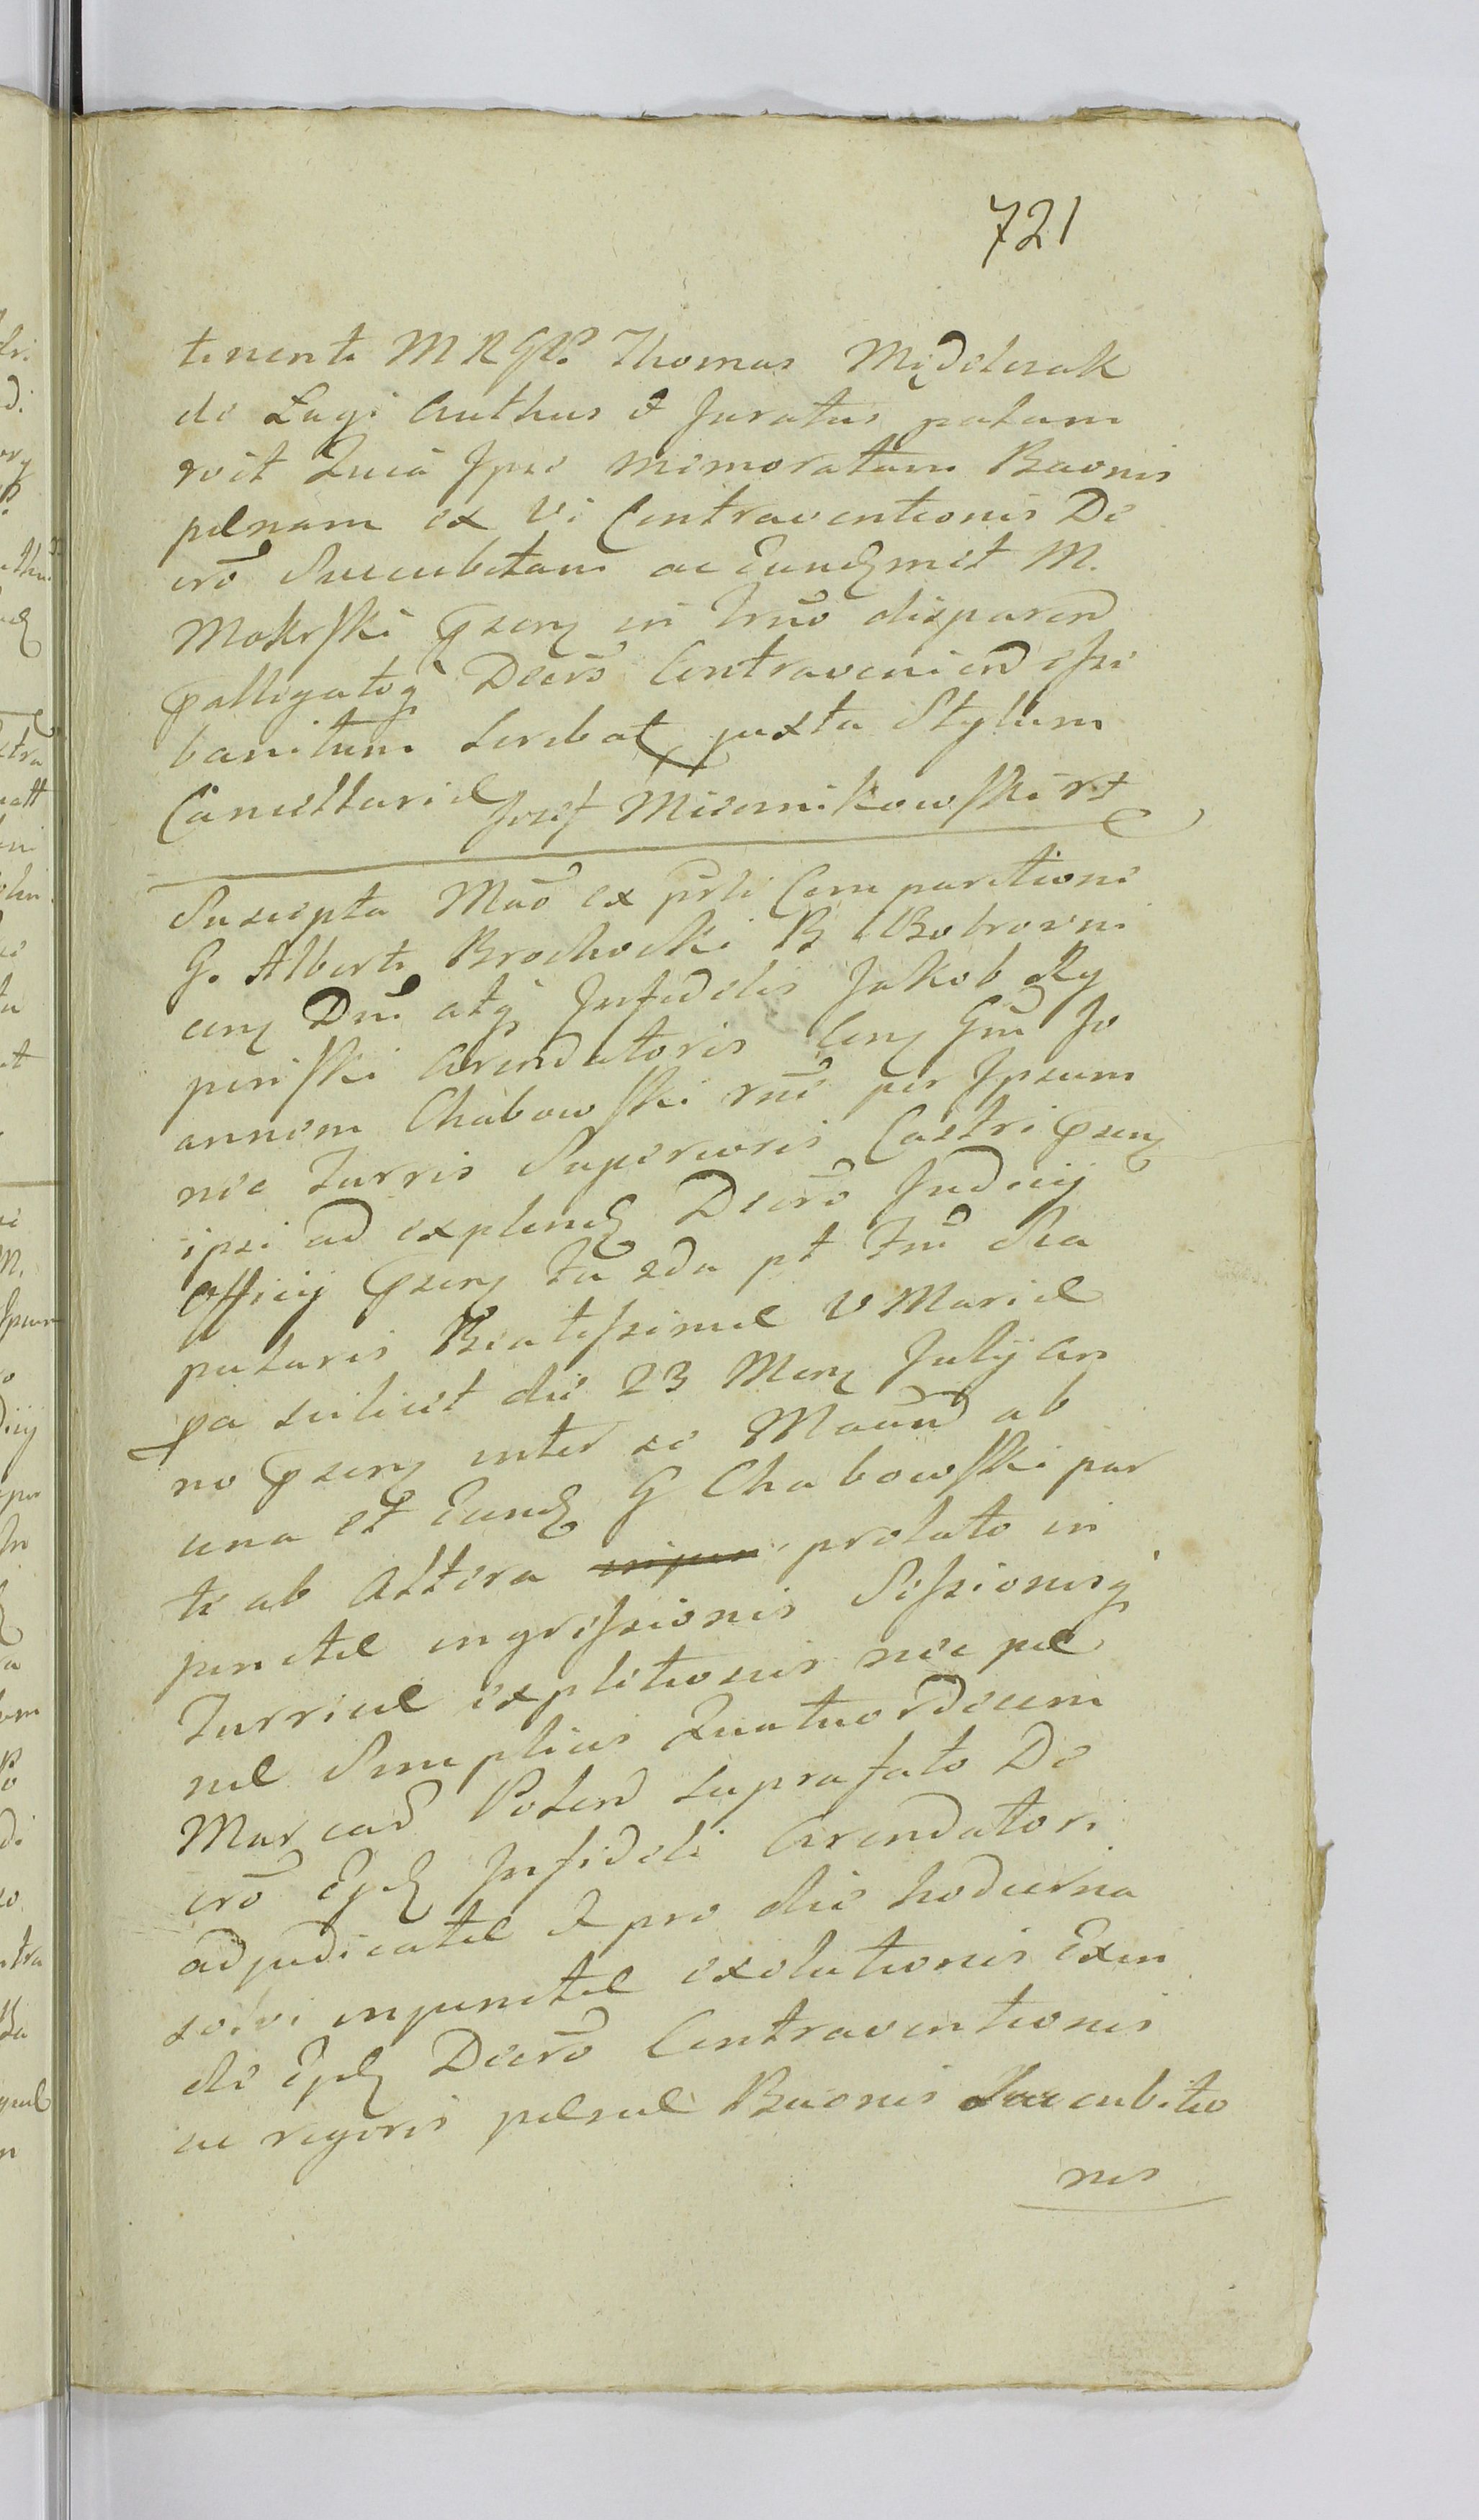 721
tinenti M R GR. Thomas Mędelczak
de Lugi Authus & Juratus palam
roit Quia Ipse memoratam Baonis
pænam ex vi Contraventionis De
crõ Succubitam ac Eundmet M.
Mokrski pseng in trno disparen
palligatoq Decrõ Contravenien esse
banitum Scribat juxta Stylum
Cancellariæ Josef Miernikowski rt
Suscepta Mãõ ex prli Comparitione
G. Alberti Brochocki B Bobrowni
cen Dni atq Infidelis Jakob Ry
pinski Arendatoris Cen Gm Jo
annem Chabowski rne per Ipsum
nec turris Superioris Castri psen
ipsi ad explend Decrõ Judicij
Officij psen fu sda pt Fm Sca
pularis Beatissimæ V Mariæ
pa scilicet die 23 Men Julij An
no psen inter se Maand ab
una et Eund G Chabowski par
te ab Altera prolato in
punctæ ingressionis Sessionisq
Turriæ expletionis nec pæ
næ Simplicis Quatuordecem
Marcar Polon suprafato De
crõ Ejd Infideli Arendatori
adjudicatæ & pro die hodierna
solvi inpunctæ exolutionis Exin
de Ejd Decrõ Contraventionis
ac rigoris pænæ Baonis Succubitio
nis